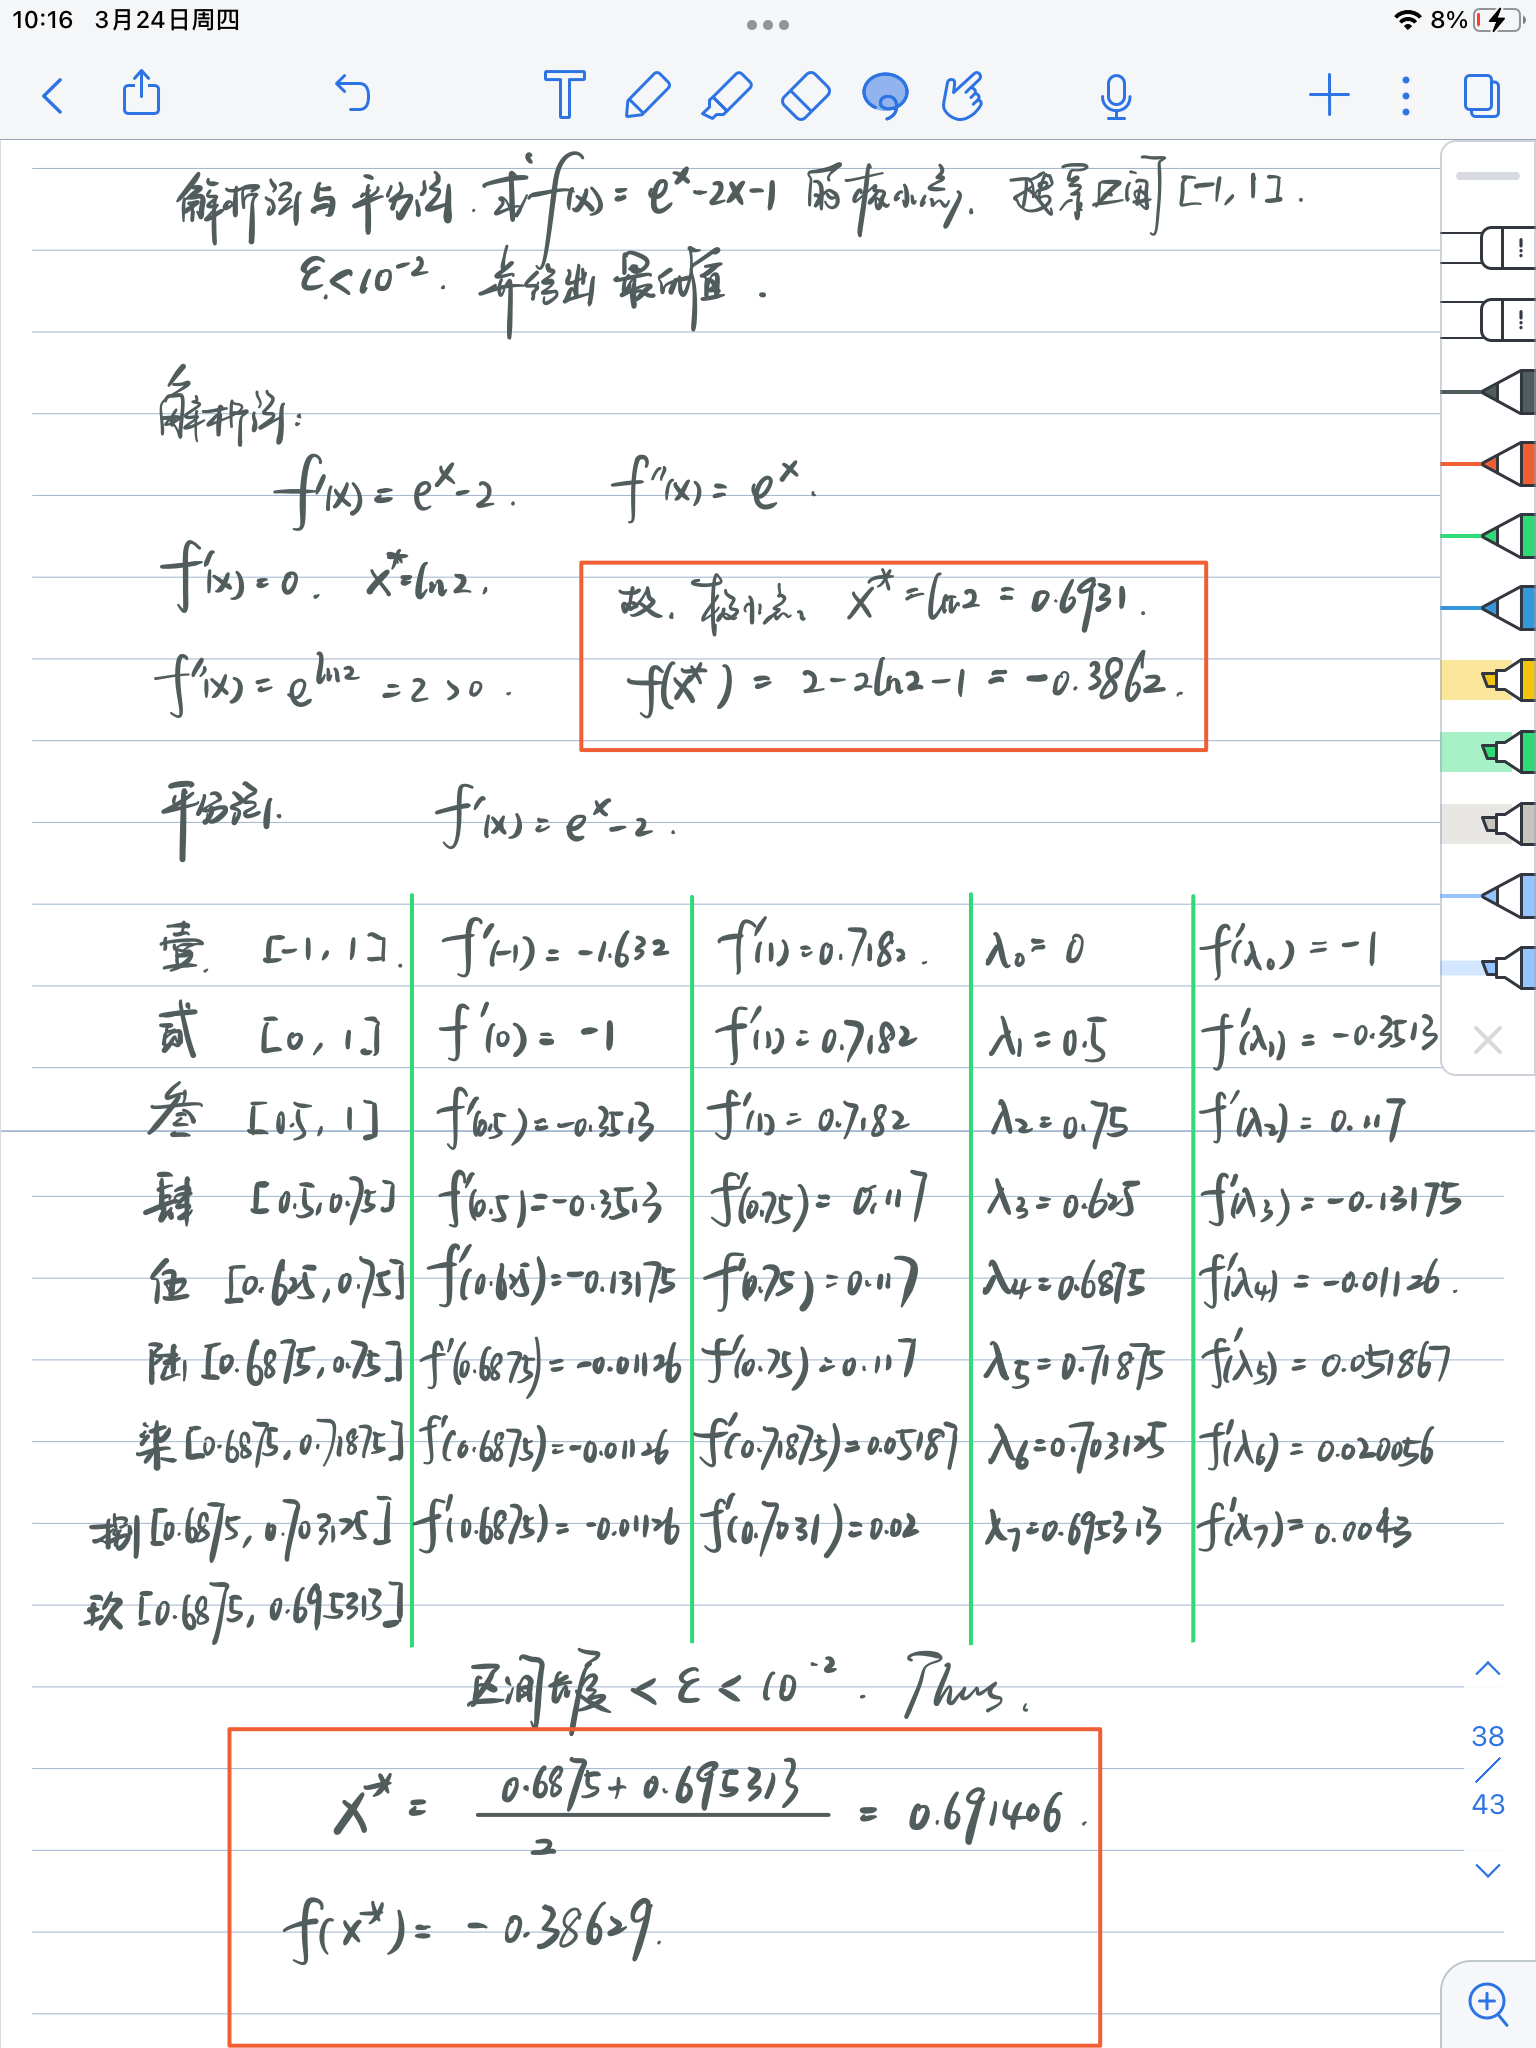 10:16 3月24日周四 8%
解析法与平分法. 求f(x) = e^x-2x-1 的极小点, 搜索区间 [-1, 1].
ε<10^-2. 并给出最优值.
解析法:
f'(x) = e^x-2. f''(x) = e^x.
f'(x) = 0. x*=ln2.
故. 极小点. x*=ln2 = 0.6931.
f''(x) = e^ln2 = 2 > 0.
f(x*) = 2-2ln2-1 = -0.3862.
平分法. f'(x) = e^x-2.
壹. [-1, 1]. f'(-1) = -1.632 f'(1) = 0.7182. λ0 = 0 f'(λ0) = -1
贰 [0, 1] f'(0) = -1 f'(1) = 0.7182 λ1 = 0.5 f'(λ1) = -0.3513
叁 [0.5, 1] f'(0.5) = -0.3513 f'(1) = 0.7182 λ2 = 0.75 f'(λ2) = 0.117
肆 [0.5, 0.75] f'(0.5) = -0.3513 f'(0.75) = 0.117 λ3 = 0.625 f'(λ3) = -0.13175
伍 [0.625, 0.75] f'(0.625) = -0.13175 f'(0.75) = 0.117 λ4 = 0.6875 f'(λ4) = -0.01126.
陆 [0.6875, 0.75] f'(0.6875) = -0.01126 f'(0.75) = 0.117 λ5 = 0.71875 f'(λ5) = 0.051867
柒 [0.6875, 0.71875] f'(0.6875) = -0.01126 f'(0.71875) = 0.05187 λ6 = 0.703125 f'(λ6) = 0.020056
捌 [0.6875, 0.703125] f'(0.6875) = -0.01126 f'(0.7031) = 0.02 λ7 = 0.695313 f'(λ7) = 0.0043
玖 [0.6875, 0.695313]
区间长度 < ε < 10^-2. Thus.
x* = (0.6875 + 0.695313)/2 = 0.691406.
f(x*) = -0.38629.
38
/
43